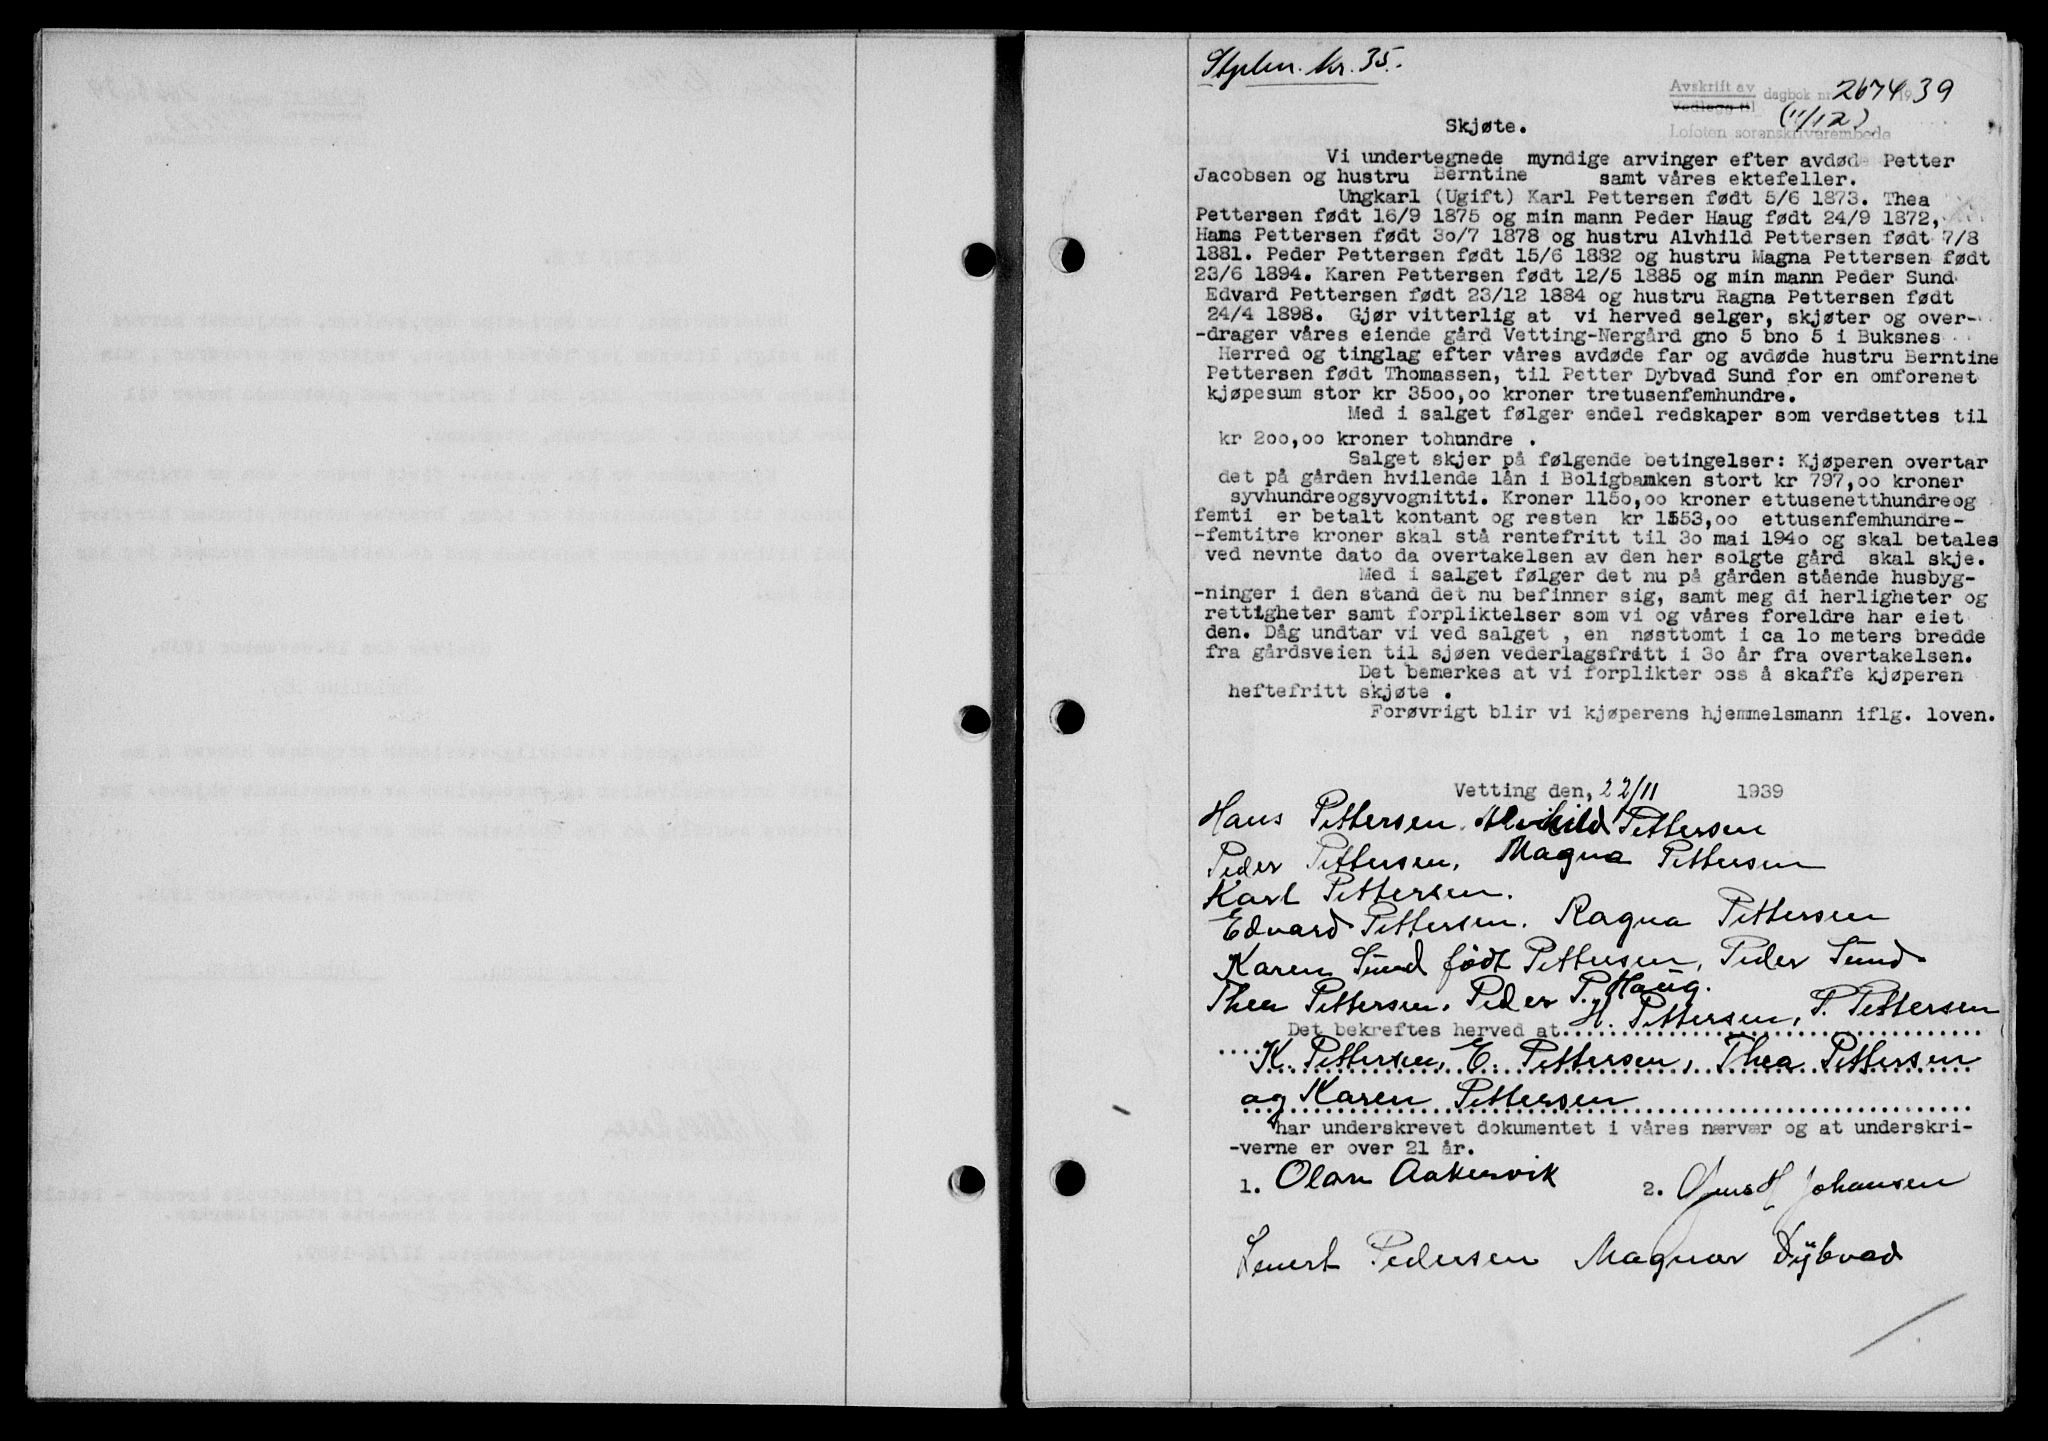 Stplm. kr. 35.
Avskrift av
Vedlegg til dagbok nr. 2674 1939
(11/12)
Lofoten sorenskriverembede
Skjøte.
Vi undertegnede myndige arvinger efter avdød Petter
Jacobsen og hustru Berntine samt våres ektefeller.
Ungkarl (Ugift) Karl Pettersen født 5/6 1873. Thea
Pettersen født 16/9 1875 og min mann Peder Haug født 24/9 1872,
Hans Pettersen født 30/7 1878 og hustru Alvhild Pettersen født 7/8
1881. Peder Pettersen født 15/6 1882 og hustru Magna Pettersen født
23/6 1894. Karen Pettersen født 12/5 1885 og min mann Peder Sund
Edvard Pettersen født 23/12 1884 og hustru Ragna Pettersen født
24/4 1898. Gjør vitterlig at vi herved selger, skjøter og over-
-drager våres eiende gård Vetting-Nergård gno 5 bno 5 i Buksnes
Herred og tinglag efter våres avdøde far og avdøde hustru Berntine
Pettersen født Thomassen, til Petter Dybvad Sund for en omforenet
kjøpesum stor kr 3500,00 kroner tretusenfemhundre.
Med i salget følger endel redskaper som verdsettes til
kr 200,00 kroner tohundre .
Salget skjer på følgende betingelser: Kjøperen overtar
det på gården hvilende lån i Boligbanken stort kr 797,00 kroner
syvhundreogsyvognitti. Kroner 1150,00 kroner ettusenetthundreog
femti er betalt kontant og resten kr 1553,00 ettusenfemhundre-
-femtitre kroner skal stå rentefritt til 30 mai 1940 og skal betales
ved nevnte dato da overtakelsen av den her solgte gård skal skje.
Med i salget følger det nu på gården stående husbyg-
-ninger i den stand det nu befinner sig, samt meg di herligheter og
rettigheter samt forpliktelser som vi og våres foreldre har eiet
den. Dåg undtar vi ved salget , en nøsttomt i ca 10 meters bredde
fra gårdsveien til sjøen vederlagsfritt i 30 år fra overtakelsen.
Det bemerkes at vi forplikter oss å skaffe kjøperen
heftefritt skjøte .
Forøvrigt blir vi kjøperens hjemmelsmann iflg. loven.
Vetting den, 22/11 1939
Hans Pettersen. Alvhild Pettersen
Peder Pettersen, Magna Pettersen
Karl Pettersen.
Edvard Pettersen. Ragna Pettersen
Karen Sund født Pettersen, Peder Sund
Thea Pettersen. Peder P. Haug.
Det bekreftes herved at H. Pettersen, P. Pettersen
K. Pettersen, E. Pettersen, Thea Pettersen
og Karen Pettersen
har underskrevet dokumentet i våres nærvær og at underskri-
-verne er over 21 år.
1. Olav Aakervik 2. Johansen
Lenert Pedersen Magnar Dybvad